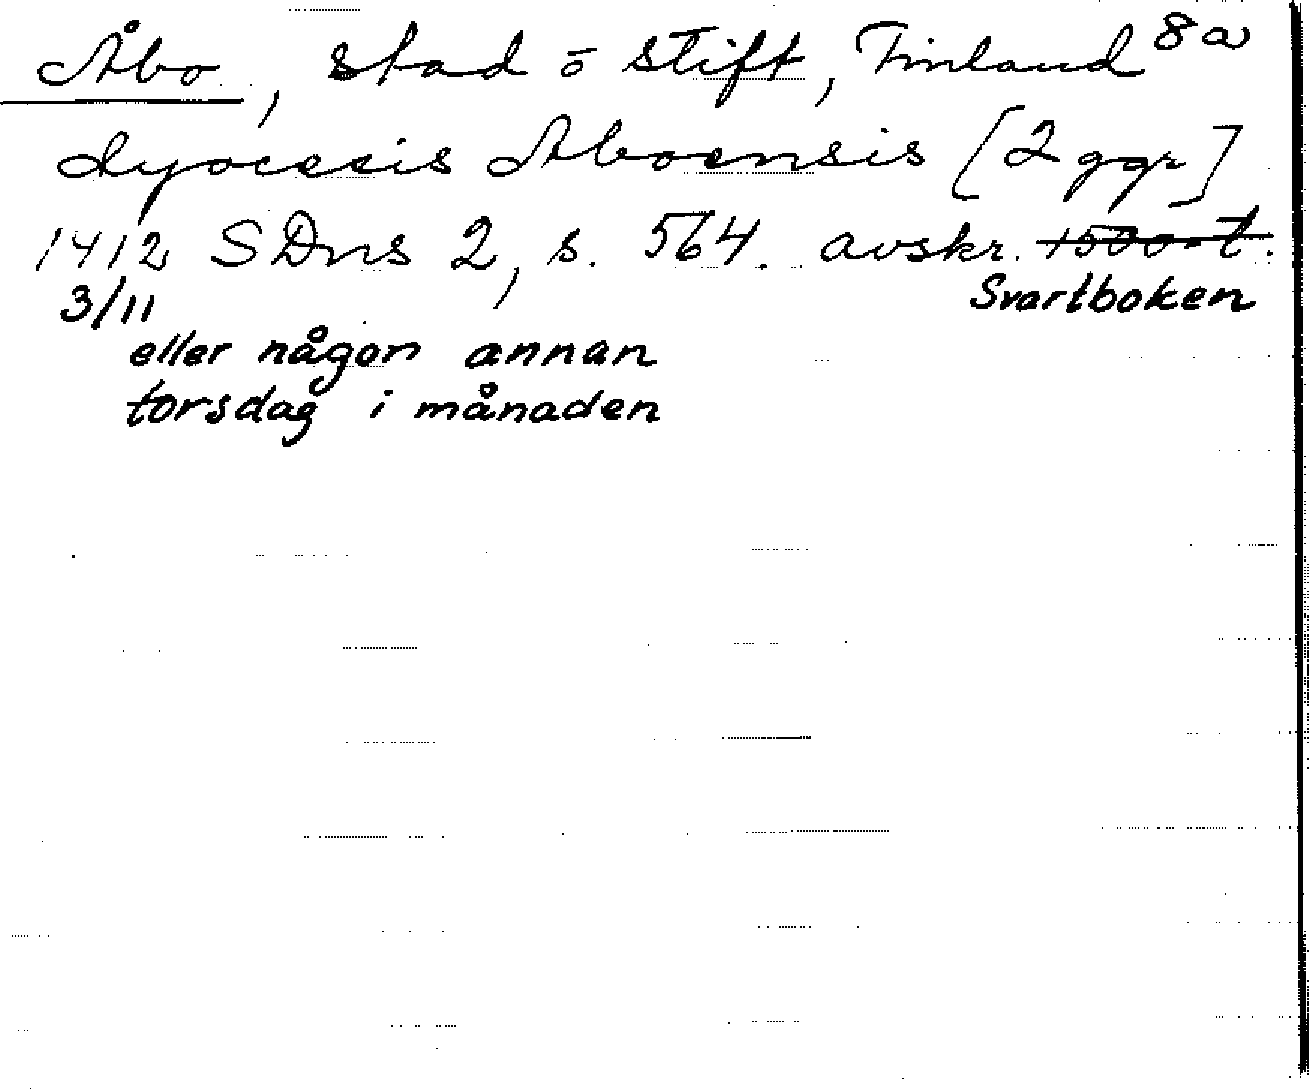 Åbo, stad ō stift, Finland 8a
dyocesis Aboensis [2 ggr]
1412 SDns 2, s. 564. avskr. 1500-t.
3/11 Svartboken
eller någon annan
torsdag i månaden